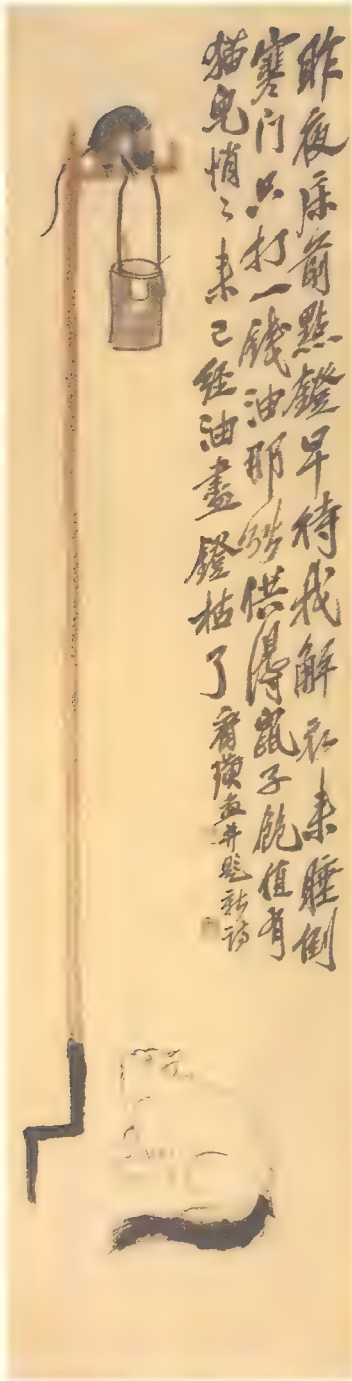 昨夜床前點鐙早待我解衣來睡倒
寒门只打一錢油那能供得鼠子飽值有
猫兒悄〻來已經油盡鐙枯了
齊璜畫并題新詩